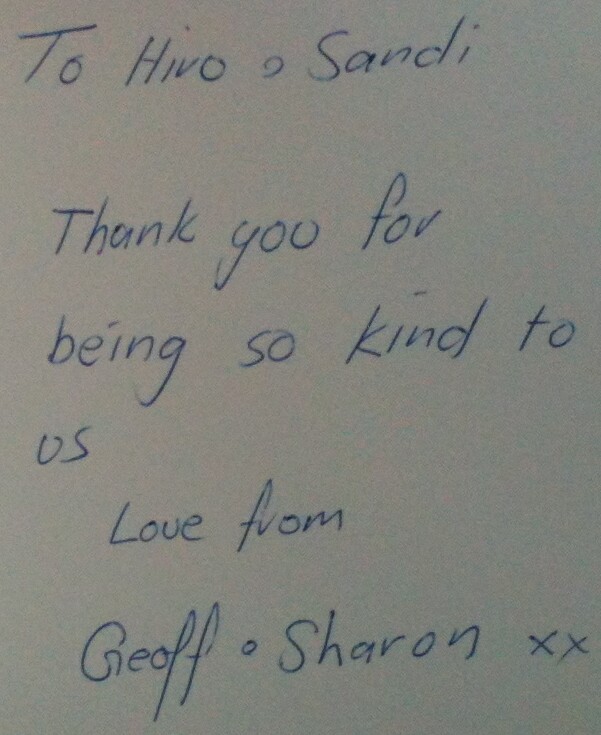 To Hiro & Sandi
Thank you for
being so kind to
us
Love from
Geoff & Sharon xx